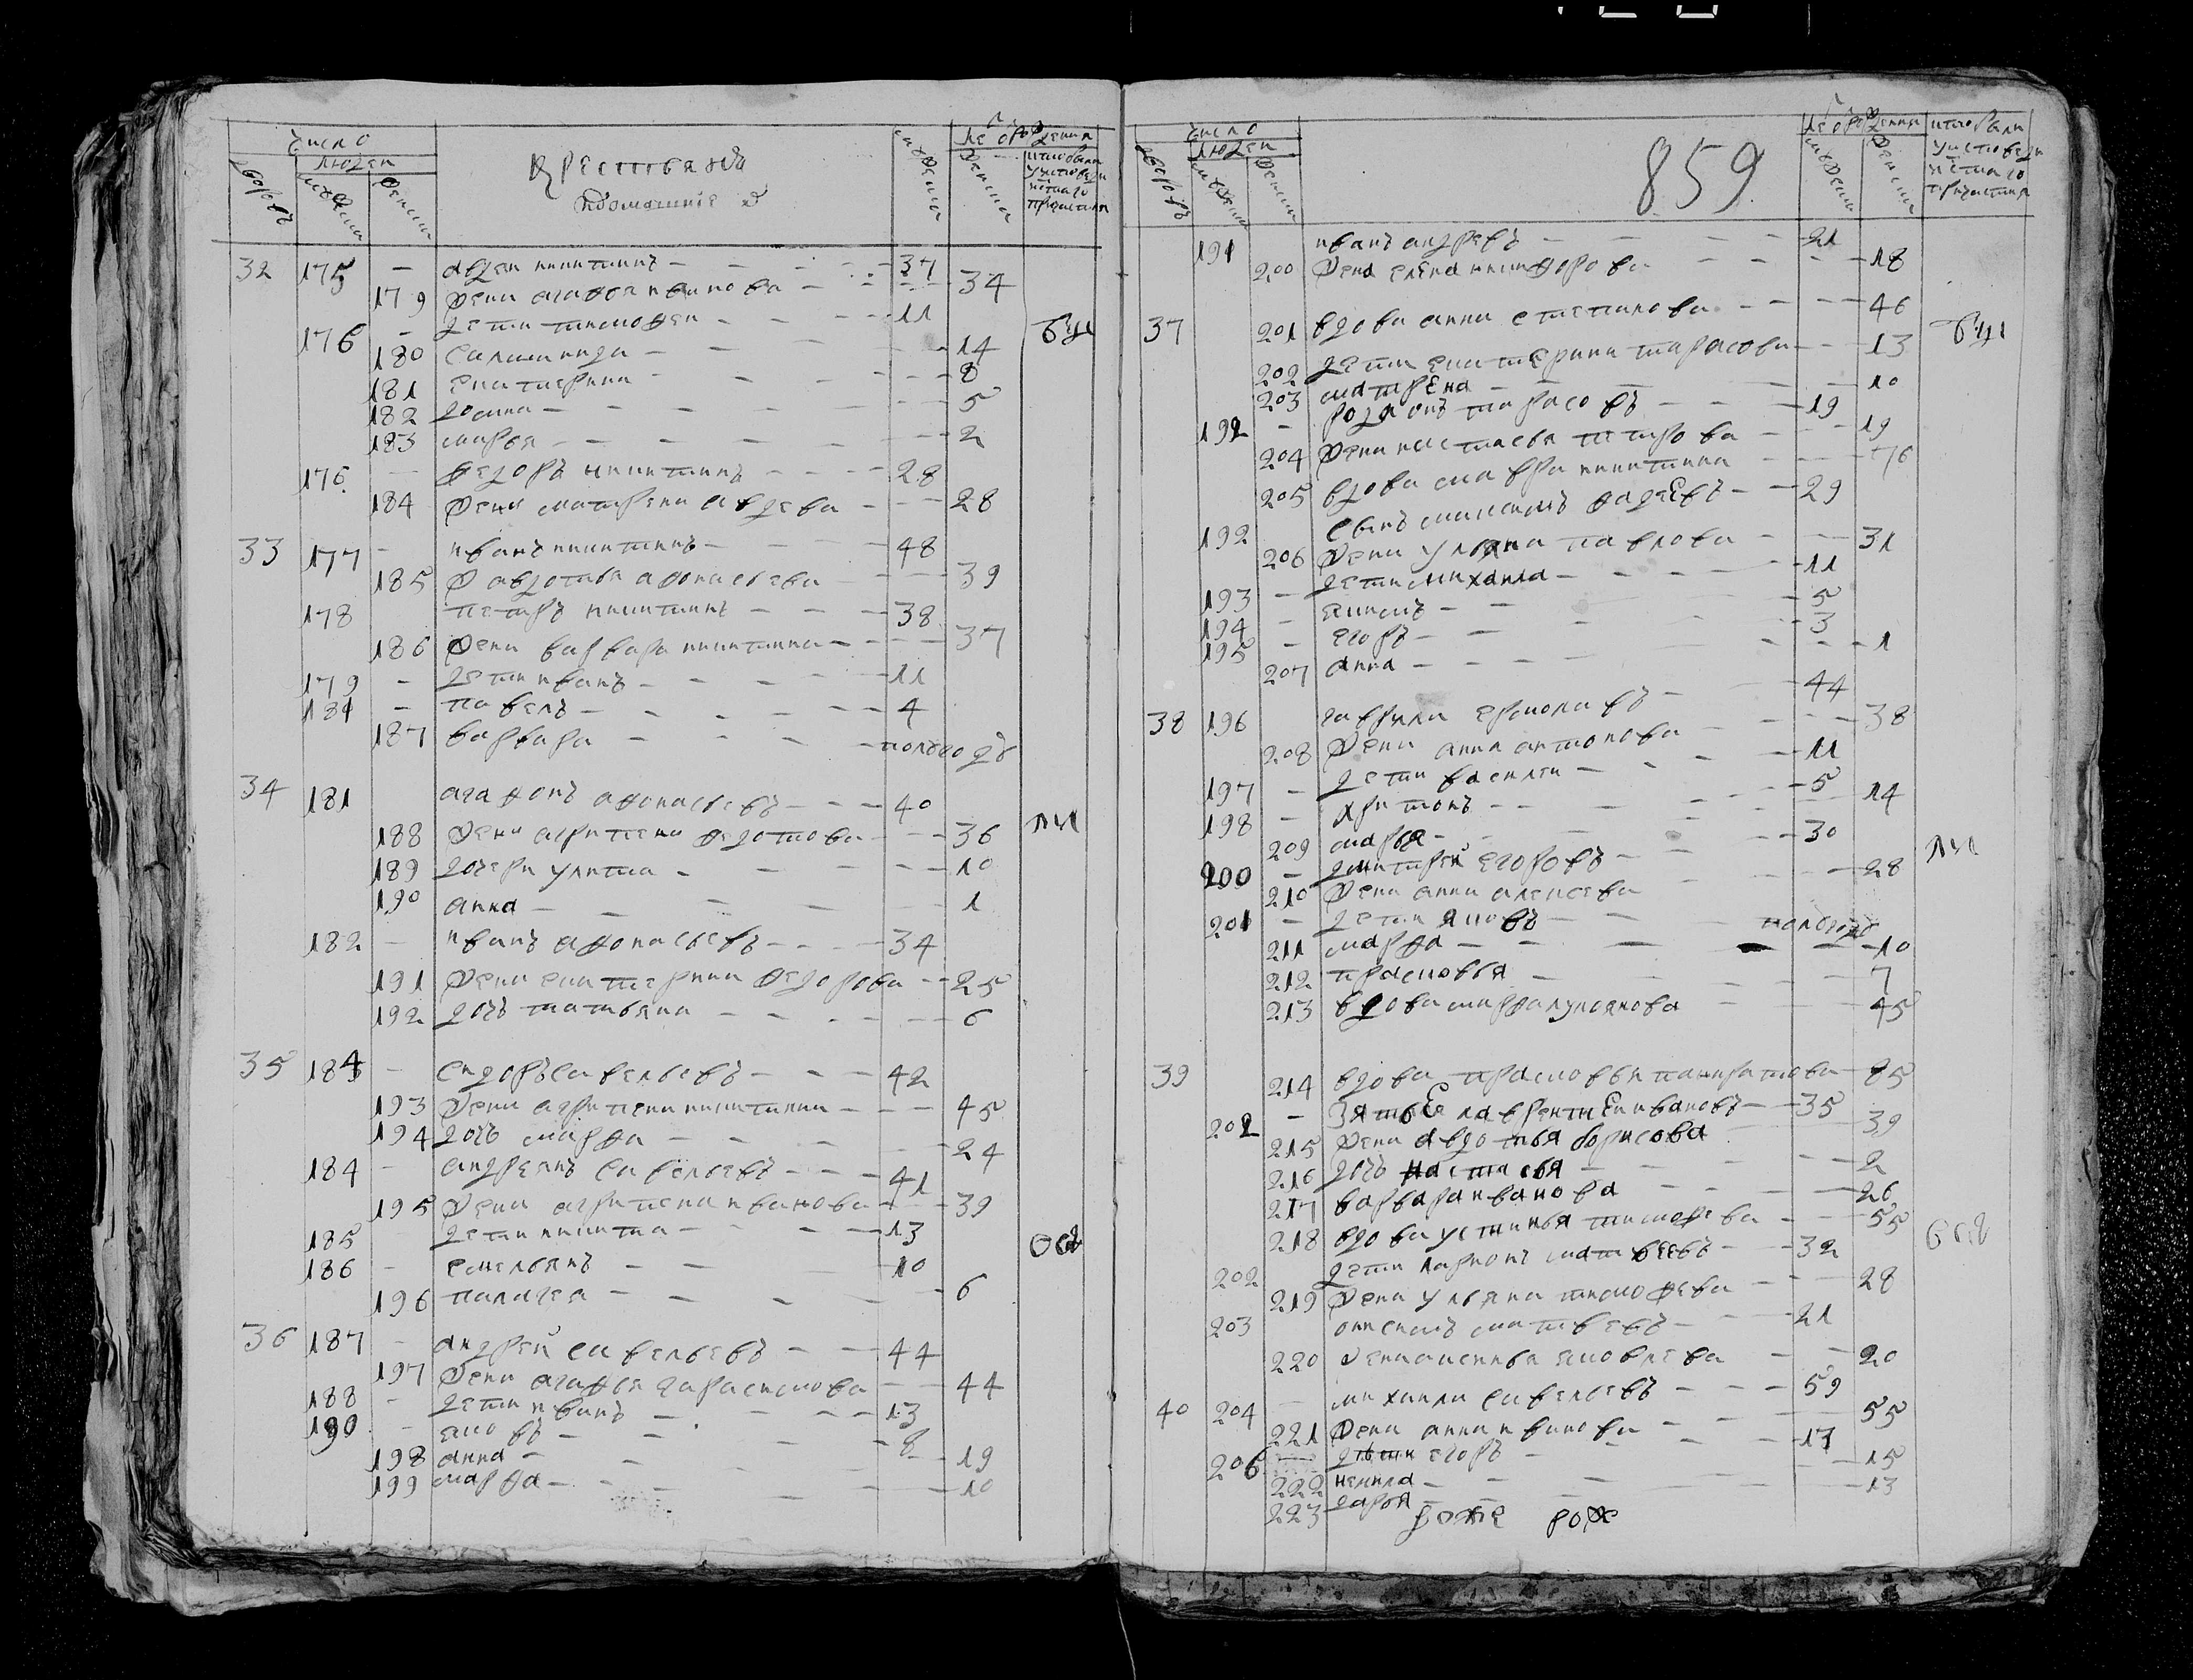 число
людей
дворовъ
мужеска
женска
крестьяня
и домашние ж
мужеска
женска
32 175 - авдеи никитинъ - - - 37
179 жена агафея иванова - - - 34
176 - дети тимофеи - - - 11
180 саламанида - - - 14
181 екатерина - - - 8
182 домна - - - 5
183 марья - - - 2
176 - федоръ никитинъ - - - 28
184 жена матрена авдева - - - 28
33 177 - иванъ никитинъ - - - 48
185 ж авдотья афонасьева - - - 39
178 петръ никитинъ - - - 38
186 жена варвара никитина - - - 37
179 - дети иванъ - - - 11
181 - павелъ - - - 4
187 варвара - - - полгода
34 181 агафонъ афонасьевъ - - - 40
188 жена агрипена федотова - - - 36
189 дочери улита - - - 10
190 анна - - - 1
182 - иванъ афонасьевъ - - - 34
191 жена екатерина федорова - - 25
192 дочь татьяна - - - 6
35 184 - сидоръ савельевъ - - - 42
193 жена агрипена никитина - - - 45
194 дочь марфа - - - 24
184 - андреянъ савельевъ - - - 41
195 жена агрипена иванова - - - 39
185 - дети никита - - - 13
186 - емельянъ - - - 10
196 палагея - - - 6
36 187 - андрей савельевъ - - - 44
197 жена агафья гарасимова - - 44
188 - дети иванъ - - - 13
190 - яковъ - - - 8
198 анна - - - 19
199 марфа - - - 10
859
число
людей
дворовъ
мужеска
женска
мужеска
женска
191 иванъ андревъ - - - 21
200 жена елена никифорова - - - 18
37 201 вдова анна степанова - - - 46
202 дети екатерина тарасова - - - 13
203 матрена - - - 10
192 - родионъ тарасовъ - - - 19
204 жена настасья петрова - - - 19
205 вдова мавра никитина - - - 76
192 сынъ максимъ фадеевъ - - 29
206 жена ульяна павлова - - - 31
193 - дети михаила - - - 11
194 - якимъ - - - 5
195 - егоръ - - - 3
207 анна - - - 1
38 196 гаврила ермолаевъ - - 44
208 жена анна антонова - - - 38
197 - дети василеи - - - 11
198 - харитонъ - - - 5
209 марья - - - 14
200 - дмитрей егоровъ - - - 30
210 жена анна алексева - - - 28
201 - дети яковъ - - полгода
211 марфа - - - 10
212 прасковья - - - 7
213 вдова марфа лукоянова - - 45
39 214 вдова прасковья панкратова - 85
202 - зятьЕ лаврентиЕи ивановъ - - 35
215 жена авдотья борисова - 39
216 дочь настасья - - - 2
217 варвара иванова - - - 26
218 вдова устинья тимофева - - - 55
202 дети ларионъ матвеевъ - - - 32
219 жена ульяна тимофева - - - 28
203 онисимъ матвевъ - - - 21
220 жена аксинья яковлева - - 20
40 204 - михаила савельевъ - - - 59
221 жена анна иванова - - - 55
206 - дѣти егоръ - - - 17
222 ненила - - - 15
223 дарья - - - 13